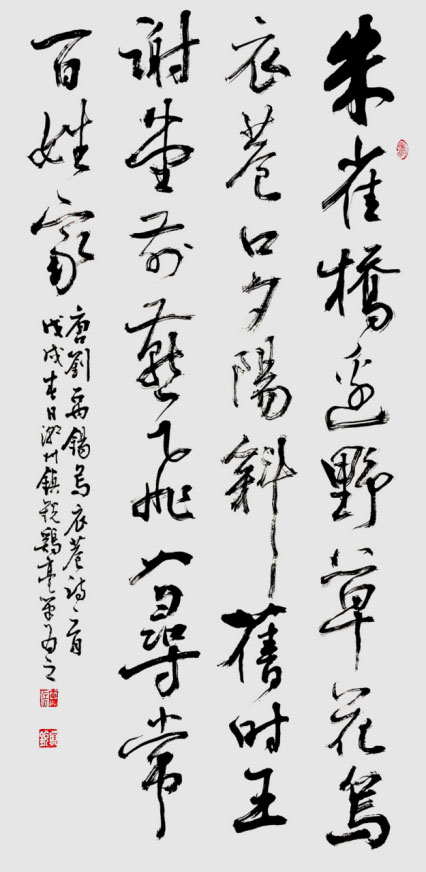 朱雀橋邊野草花烏
衣巷口夕陽斜舊时王
謝堂前燕飛入尋常
百姓家
唐劉禹錫烏衣巷詩一首
戊戌春日湖州鎮